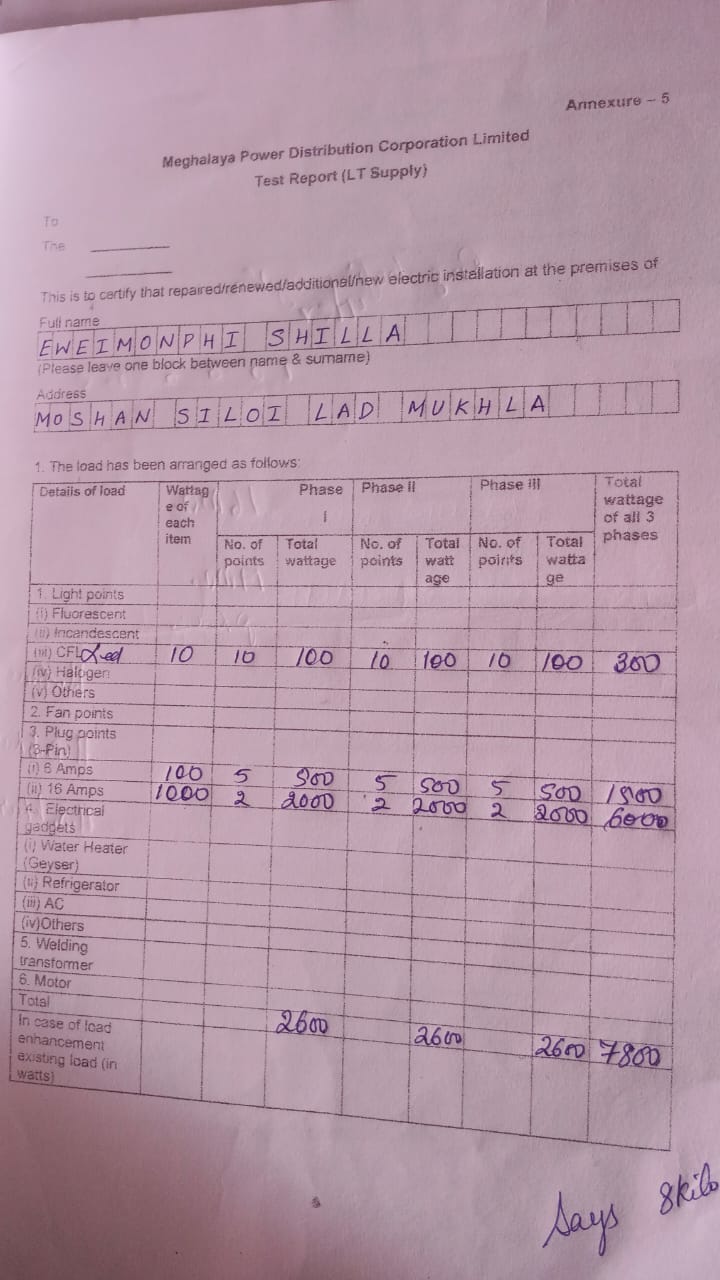 Annexure - 5
Meghalaya Power Distribution Corporation Limited
Test Report (LT Supply)
To
The
This is to certify that repaired/renewed/additional/new electric installation at the premises of
Full name
EWEIMONPHI SHILLA
(Please leave one block between name & surname)
Address
MOSHAN SILOI LAD MUKHLA
1. The load has been arranged as follows:
Details of load Wattag e of each item Phase I Phase II Phase III Total wattage of all 3 phases
No. of points Total wattage No. of points Total watt age No. of points Total watta ge
1. Light points
(i) Fluorescent
(ii) Incandescent
(iii) CFL Led 10 10 100 10 100 10 100 300
(iv) Halogen
(v) Others
2. Fan points
3. Plug points
(3-Pin)
(i) 6 Amps 100 5 500 5 500 5 500 1500
(ii) 16 Amps 1000 2 2000 2 2000 2 2000 6000
4. Electrical
gadgets
(i) Water Heater
(Geyser)
(ii) Refrigerator
(iii) AC
(iv)Others
5. Welding
transformer
6. Motor
Total 2600 2600 2600 7800
In case of load
enhancement
existing load (in
watts)
Says 8kilo